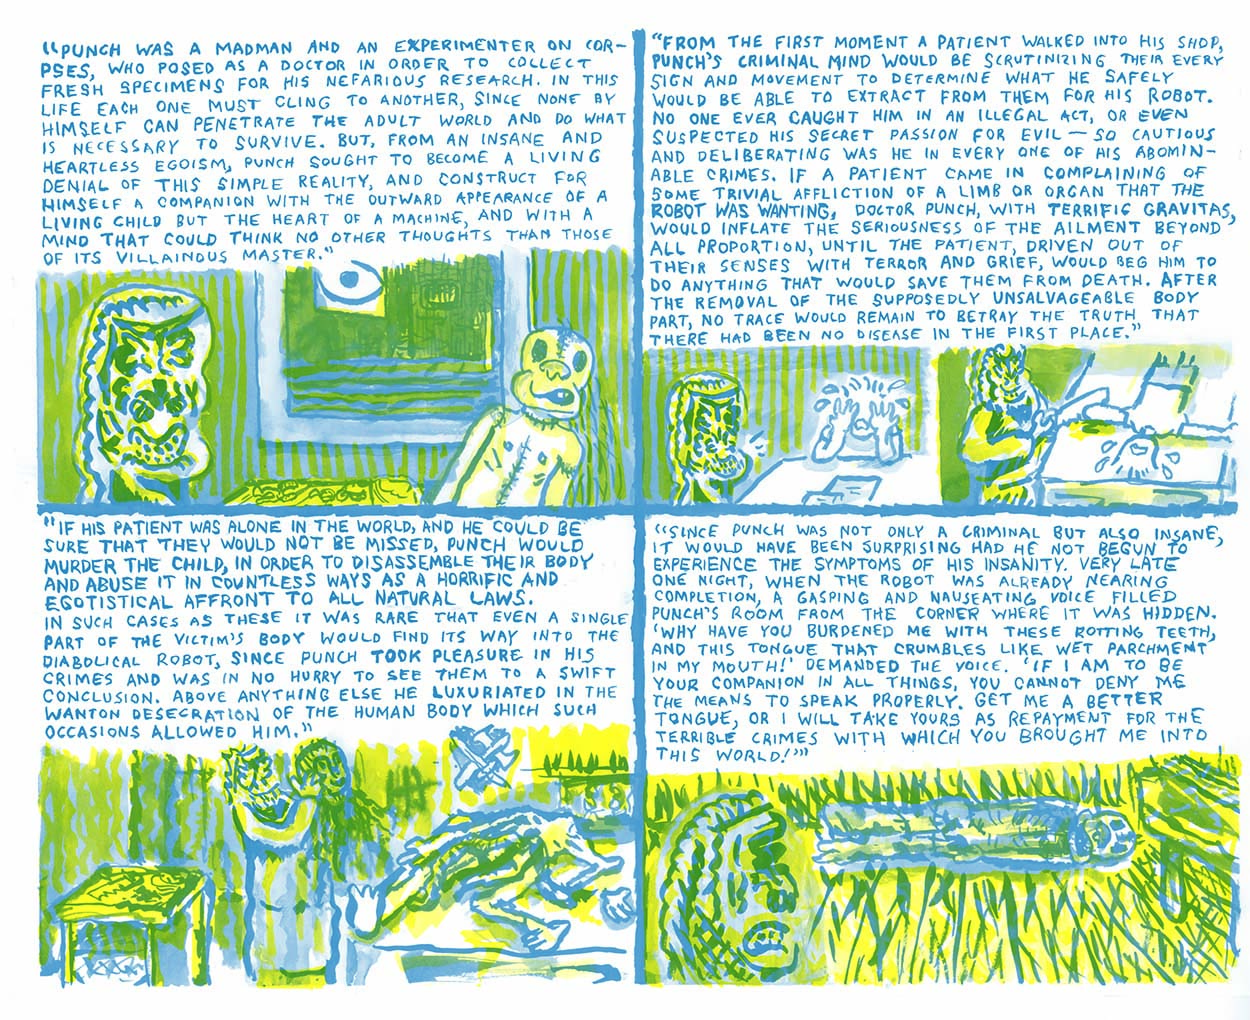 "PUNCH WAS A MADMAN AND AN EXPERIMENTER ON COR-
PSES, WHO POSED AS A DOCTOR IN ORDER TO COLLECT
FRESH SPECIMENS FOR HIS NEFARIOUS RESEARCH. IN THIS
LIFE EACH ONE MUST CLING TO ANOTHER, SINCE NONE BY
HIMSELF CAN PENETRATE THE ADULT WORLD AND DO WHAT
IS NECESSARY TO SURVIVE. BUT, FROM AN INSANE AND
HEARTLESS EGOISM, PUNCH SOUGHT TO BECOME A LIVING
DENIAL OF THIS SIMPLE REALITY, AND CONSTRUCT FOR
HIMSELF A COMPANION WITH THE OUTWARD APPEARANCE OF A
LIVING CHILD BUT THE HEART OF A MACHINE, AND WITH A
MIND THAT COULD THINK NO OTHER THOUGHTS THAN THOSE
OF ITS VILLAINOUS MASTER."
"FROM THE FIRST MOMENT A PATIENT WALKED INTO HIS SHOP,
PUNCH'S CRIMINAL MIND WOULD BE SCRUTINIZING THEIR EVERY
SIGN AND MOVEMENT TO DETERMINE WHAT HE SAFELY
WOULD BE ABLE TO EXTRACT FROM THEM FOR HIS ROBOT.
NO ONE EVER CAUGHT HIM IN AN ILLEGAL ACT, OR EVEN
SUSPECTED HIS SECRET PASSION FOR EVIL — SO CAUTIOUS
AND DELIBERATING WAS HE IN EVERY ONE OF HIS ABOMIN-
ABLE CRIMES. IF A PATIENT CAME IN COMPLAINING OF
SOME TRIVIAL AFFLICTION OF A LIMB OR ORGAN THAT THE
ROBOT WAS WANTING, DOCTOR PUNCH, WITH TERRIFIC GRAVITAS,
WOULD INFLATE THE SERIOUSNESS OF THE AILMENT BEYOND
ALL PROPORTION, UNTIL THE PATIENT, DRIVEN OUT OF
THEIR SENSES WITH TERROR AND GRIEF, WOULD BEG HIM TO
DO ANYTHING THAT WOULD SAVE THEM FROM DEATH. AFTER
THE REMOVAL OF THE SUPPOSEDLY UNSALVAGEABLE BODY
PART, NO TRACE WOULD REMAIN TO BETRAY THE TRUTH THAT
THERE HAD BEEN NO DISEASE IN THE FIRST PLACE."
"IF HIS PATIENT WAS ALONE IN THE WORLD, AND HE COULD BE
SURE THAT THEY WOULD NOT BE MISSED, PUNCH WOULD
MURDER THE CHILD, IN ORDER TO DISASSEMBLE THEIR BODY
AND ABUSE IT IN COUNTLESS WAYS AS A HORRIFIC AND
EGOTISTICAL AFFRONT TO ALL NATURAL LAWS.
IN SUCH CASES AS THESE IT WAS RARE THAT EVEN A SINGLE
PART OF THE VICTIM'S BODY WOULD FIND ITS WAY INTO THE
DIABOLICAL ROBOT, SINCE PUNCH TOOK PLEASURE IN HIS
CRIMES AND WAS IN NO HURRY TO SEE THEM TO A SWIFT
CONCLUSION. ABOVE ANYTHING ELSE HE LUXURIATED IN THE
WANTON DESECRATION OF THE HUMAN BODY WHICH SUCH
OCCASIONS ALLOWED HIM."
"SINCE PUNCH WAS NOT ONLY A CRIMINAL BUT ALSO INSANE,
IT WOULD HAVE BEEN SURPRISING HAD HE NOT BEGUN TO
EXPERIENCE THE SYMPTOMS OF HIS INSANITY. VERY LATE
ONE NIGHT, WHEN THE ROBOT WAS ALREADY NEARING
COMPLETION, A GASPING AND NAUSEATING VOICE FILLED
PUNCH'S ROOM FROM THE CORNER WHERE IT WAS HIDDEN.
'WHY HAVE YOU BURDENED ME WITH THESE ROTTING TEETH,
AND THIS TONGUE THAT CRUMBLES LIKE WET PARCHMENT
IN MY MOUTH!' DEMANDED THE VOICE. 'IF I AM TO BE
YOUR COMPANION IN ALL THINGS, YOU CANNOT DENY ME
THE MEANS TO SPEAK PROPERLY. GET ME A BETTER
TONGUE, OR I WILL TAKE YOURS AS REPAYMENT FOR THE
TERRIBLE CRIMES WITH WHICH YOU BROUGHT ME INTO
THIS WORLD!'"